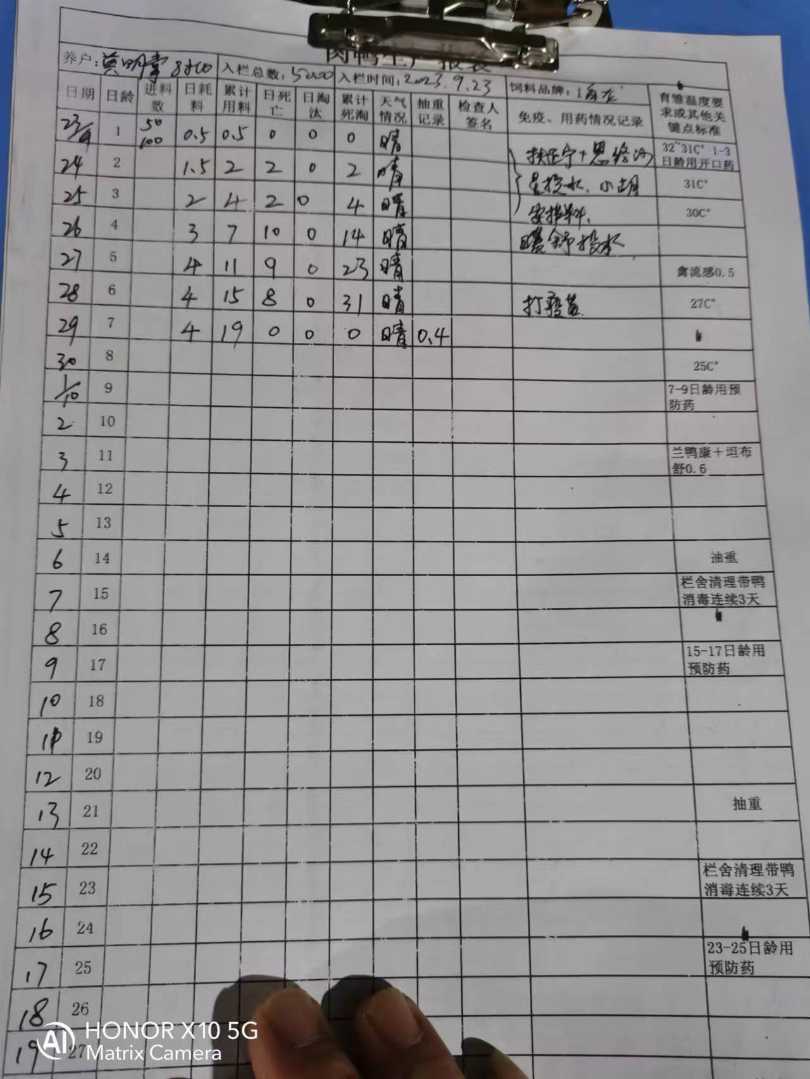 肉鸭生产报表
养户: 入栏总数: 5000 入栏时间: 2023.9.23 饲料品牌:
日期 日龄 进料数 日耗料 累计用料 日死亡 日淘汰 累计死淘 天气情况 抽重记录 检查人签名 免疫、用药情况记录 育雏温度要求或其他关键点标准
23/9 1 50 100 0.5 0.5 0 0 0 晴 32~31C° 1-3日龄用开口药
24 2 1.5 2 2 0 2 晴 31C°
25 3 2 4 2 0 4 晴 30C°
26 4 3 7 10 0 14 晴
27 5 4 11 9 0 23 晴 禽流感0.5
28 6 4 15 8 0 31 晴 打疫苗 27C°
29 7 4 19 0 0 0 晴 0.4
30 8 25C°
1/10 9 7-9日龄用预防药
2 10
3 11 兰鸭康＋坦布舒0.6
4 12
5 13
6 14 油重
7 15 栏舍清理带鸭消毒连续3天
8 16
9 17 15-17日龄用预防药
10 18
11 19
12 20
13 21 抽重
14 22
15 23 栏舍清理带鸭消毒连续3天
16 24
17 25 23-25日龄用预防药
18 26
19 27
AI HONOR X10 5G
Matrix Camera